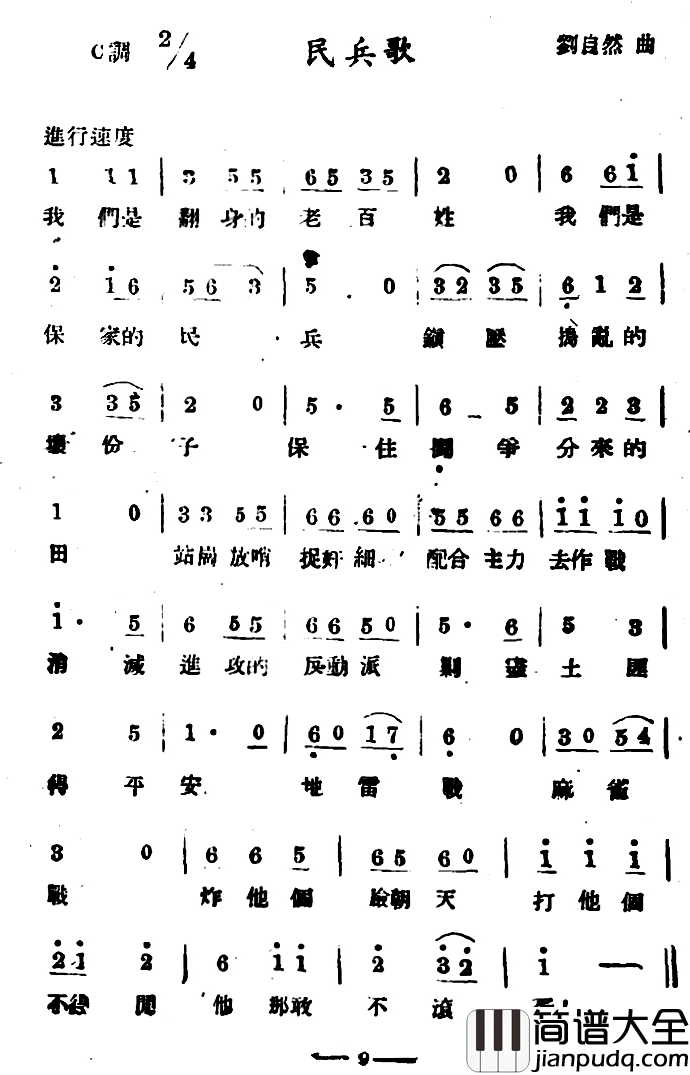 C調 2/4 民兵歌 劉自然 曲
進行速度
1 1 1 | 3 5 5 | 6 5 3 5 | 2 0 | 6 6 i |
我們是 翻身的 老百姓 我們是
2 i 6 | 5 6 3 | 5 0 | 3 2 3 5 | 6 1 2 |
保家的民兵 鎮壓搗亂的
3 3 5 | 2 0 | 5 · 5 | 6 5 | 2 2 3 |
壞份子 保住 鬭爭分來的
1 0 | 3 3 5 5 | 6 6 6 0 | 5 5 6 6 | i i i 0 |
田 站崗放哨 捉奸細 配合主力去作戰
i · 5 | 6 5 5 | 6 6 5 0 | 5 · 6 | 5 3 |
消滅進攻的反動派 剿盡土匪
2 5 | 1 · 0 | 6 0 1 7 | 6 0 | 3 0 5 4 |
得平安 地雷戰 麻雀
3 0 | 6 6 5 | 6 5 6 0 | i i i |
戰 炸他個 臉朝天 打他個
2 i 2 | 6 i i | 2 3 2 | i — ||
不得閒 他那敢不滾
— 9 —
简谱大全
jianpudq.com